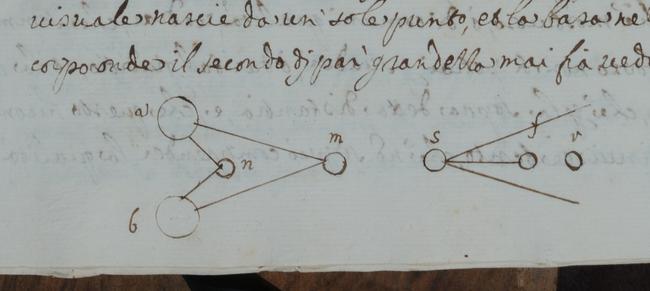 visuale nascie da un' sole punto, et la basa ne
corpo onde il secondo dj pari grandezza mai fia vedu
a m s f v
n
b